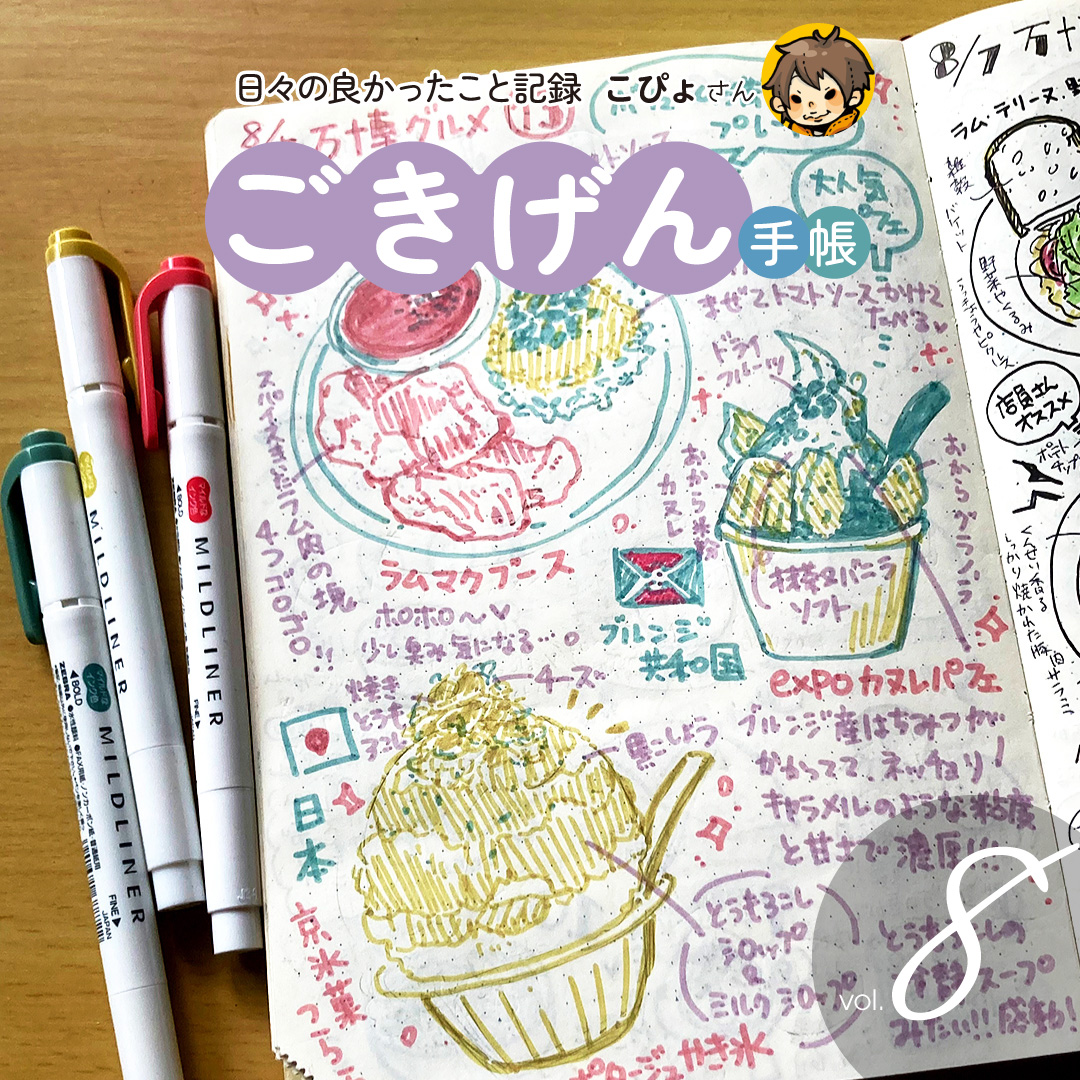 日々の良かったこと記録 こぴょさん
ごきげん手帳
万博グルメ
大人気
まぜてトマトソースかけて
たべる
ドライ
フルーツ
おからグラノーラ
おから米粉
カヌレ
抹茶&バニラ
ソフト
expoカヌレパフェ
ブルンジ
共和国
ブルンジ産はちみつが
かかってて、ネッチョリ!
キャラメルのような粘度
と甘さで濃厚!!
スパイスきいたラム肉の塊
4つゴロゴロ!!
ラムマクブース
ホロホロ〜
少し臭み気になる…。
チーズ
焼き
とうもろこし
黒こしょう
日本
京氷菓
つらら
とうもろこし
シロップ
&
ミルクシロップ
ポタージュやき氷
とうもろこしの
スープ
みたい!!感動!
vol.8
8/7 万博
ラム・テリーヌ・野
雑穀
バゲット
野菜やくるみ
店員さん
オススメ
ポテト
チップ
くんせい香る
しっかり焼かれた豚肉
サラミ
マイルドな
インク色
BOLD
MILDLINER
MILDLINER
ZEBRA
BOLD
MILDLINER
●水性顔料
●FAX用紙、ノンカーボン紙、普通紙用
FINE
JAPAN